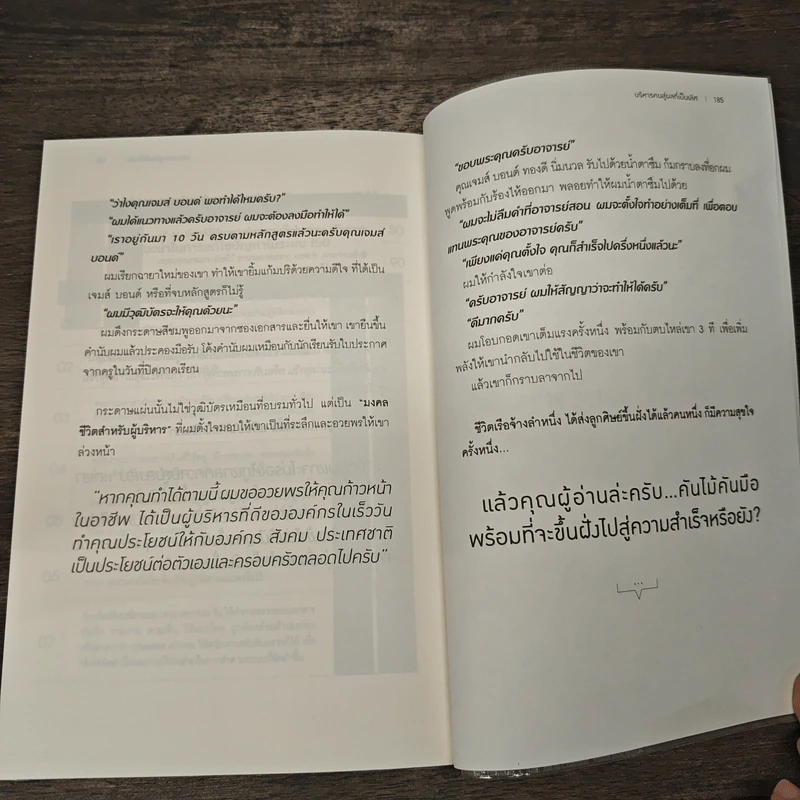 "ว่าไงคุณเจมส์ บอนด์ พอทำได้ไหมครับ?"
"ผมได้แนวทางแล้วครับอาจารย์ ผมจะต้องลงมือทำให้ได้"
"เราอยู่กันมา 10 วัน ครบตามหลักสูตรแล้วนะครับคุณเจมส์
บอนด์"
ผมเรียกฉายาใหม่ของเขา ทำให้เขายิ้มแก้มปริด้วยความดีใจ ที่ได้เป็น
เจมส์ บอนด์ หรือที่จบหลักสูตรก็ไม่รู้
"ผมมีวุฒิบัตรจะให้คุณด้วยนะ"
ผมดึงกระดาษสีชมพูออกมาจากซองเอกสารและยื่นให้เขา เขายืนขึ้น
คำนับผมแล้วประคองมือรับ โค้งคำนับผมเหมือนกับนักเรียนรับใบประกาศ
จากครูในวันที่ปิดภาคเรียน
กระดาษแผ่นนั้นไม่ใช่วุฒิบัตรเหมือนที่อบรมทั่วไป แต่เป็น "มงคล
ชีวิตสำหรับผู้บริหาร" ที่ผมตั้งใจมอบให้เขาเป็นที่ระลึกและอวยพรให้เขา
ล่วงหน้า
"หากคุณทำได้ตามนี้ ผมขออวยพรให้คุณก้าวหน้า
ในอาชีพ ได้เป็นผู้บริหารที่ดีขององค์กรในเร็ววัน
ทำคุณประโยชน์ให้กับองค์กร สังคม ประเทศชาติ
เป็นประโยชน์ต่อตัวเองและครอบครัวตลอดไปครับ"
บริหารคนสู่ผลที่เป็นเลิศ | 185
"ขอบพระคุณครับอาจารย์"
คุณเจมส์ บอนด์ ทองดี นิ่มนวล รับไปด้วยน้ำตาซึม ก้มกราบลงที่อกผม
พูดพร้อมกับร้องไห้ออกมา พลอยทำให้ผมน้ำตาซึมไปด้วย
"ผมจะไม่ลืมคำที่อาจารย์สอน ผมจะตั้งใจทำอย่างเต็มที่ เพื่อตอบ
แทนพระคุณของอาจารย์ครับ"
"เพียงแค่คุณตั้งใจ คุณก็สำเร็จไปครึ่งหนึ่งแล้วนะ"
ผมให้กำลังใจเขาต่อ
"ครับอาจารย์ ผมให้สัญญาว่าจะทำให้ได้ครับ"
"ดีมากครับ"
ผมโอบกอดเขาเต็มแรงครั้งหนึ่ง พร้อมกับตบไหล่เขา 3 ที เพื่อเพิ่ม
พลังให้เขานำกลับไปใช้ในชีวิตของเขา
แล้วเขาก็กราบลาจากไป
ชีวิตเรือจ้างลำหนึ่ง ได้ส่งลูกศิษย์ขึ้นฝั่งได้แล้วคนหนึ่ง ก็มีความสุขใจ
ครั้งหนึ่ง...
แล้วคุณผู้อ่านล่ะครับ...คันไม้คันมือ
พร้อมที่จะขึ้นฝั่งไปสู่ความสำเร็จหรือยัง?
...